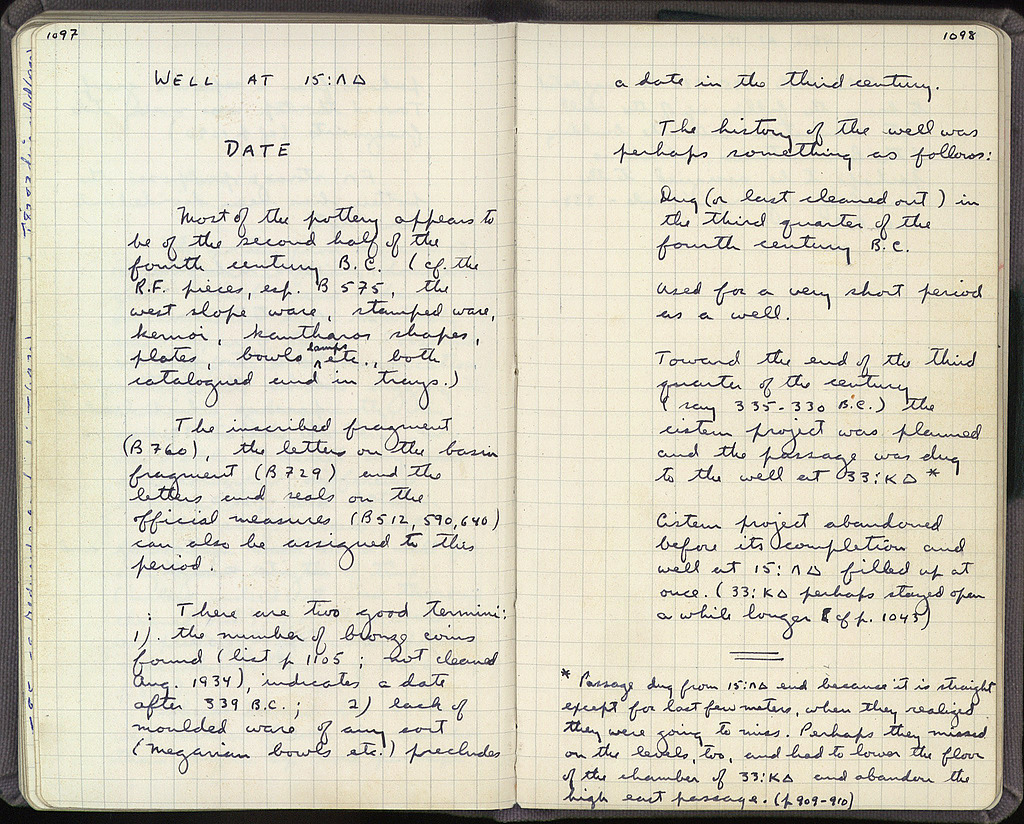 1097
WELL AT 15:ΛΔ
DATE
Most of the pottery appears to
be of the second half of the
fourth century B.C. (cf. the
R.F. pieces, esp. B 575, the
west slope ware, stamped ware,
kernoi, kantharos shapes,
plates, bowls lamps etc., both
catalogued and in trays.)
The inscribed fragment
(B 760), the letters on the basin
fragment (B 729) and the
letters and seals on the
official measures (B 512, 590, 640)
can also be assigned to this
period.
There are two good termini:
1). the number of bronze coins
found (list p 1105 ; not cleaned
Aug. 1934), indicates a date
after 339 B.C. ; 2) lack of
moulded ware of any sort
(Megarian bowls etc.) precludes
1098
a date in the third century.
The history of the well was
perhaps something as follows:
Dug (or last cleaned out) in
the third quarter of the
fourth century B.C.
Used for a very short period
as a well.
Toward the end of the third
quarter of the century
(say 335-330 B.C.) the
cistern project was planned
and the passage was dug
to the well at 33:ΚΔ *
Cistern project abandoned
before its completion and
well at 15:ΛΔ filled up at
once. (33:ΚΔ perhaps stayed open
a while longer (cf p. 1045)
* Passage dug from 15:ΛΔ end because it is straight
except for last few meters, when they realized
they were going to miss. Perhaps they missed
on the levels, too, and had to lower the floor
of the chamber of 33:ΚΔ and abandon the
high east passage. (p 909-910)